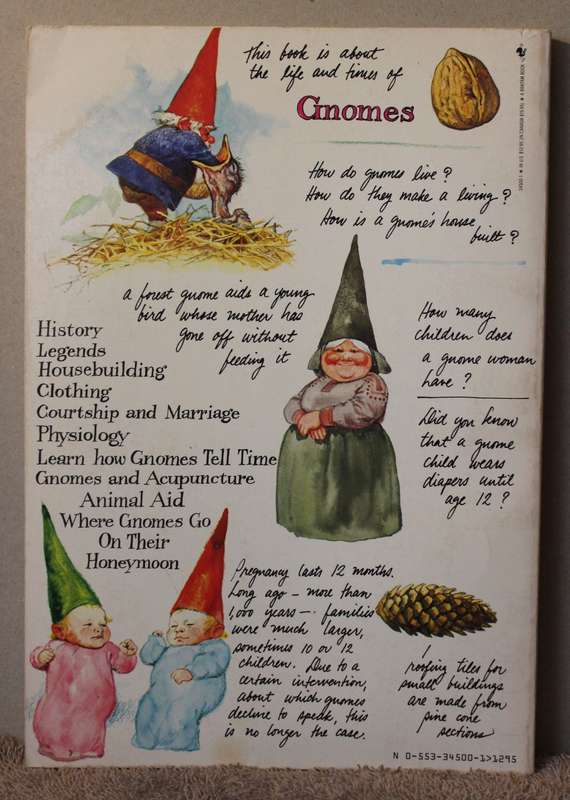 This book is about
the life and times of
Gnomes
How do gnomes live?
How do they make a living?
How is a gnome's house
built?
a forest gnome aids a young
bird whose mother has
gone off without
feeding it
History
Legends
Housebuilding
Clothing
Courtship and Marriage
Physiology
Learn how Gnomes Tell Time
Gnomes and Acupuncture
Animal Aid
Where Gnomes Go
On Their
Honeymoon
How many
children does
a gnome woman
have?
Did you know
that a gnome
child wears
diapers until
age 12?
Pregnancy lasts 12 months.
Long ago – more than
1,000 years – families
were much larger,
sometimes 10 or 12
children. Due to a
certain intervention,
about which gnomes
decline to speak, this
is no longer the case.
roofing tiles for
small buildings
are made from
pine cone
sections
N 0-553-34500-1>1295